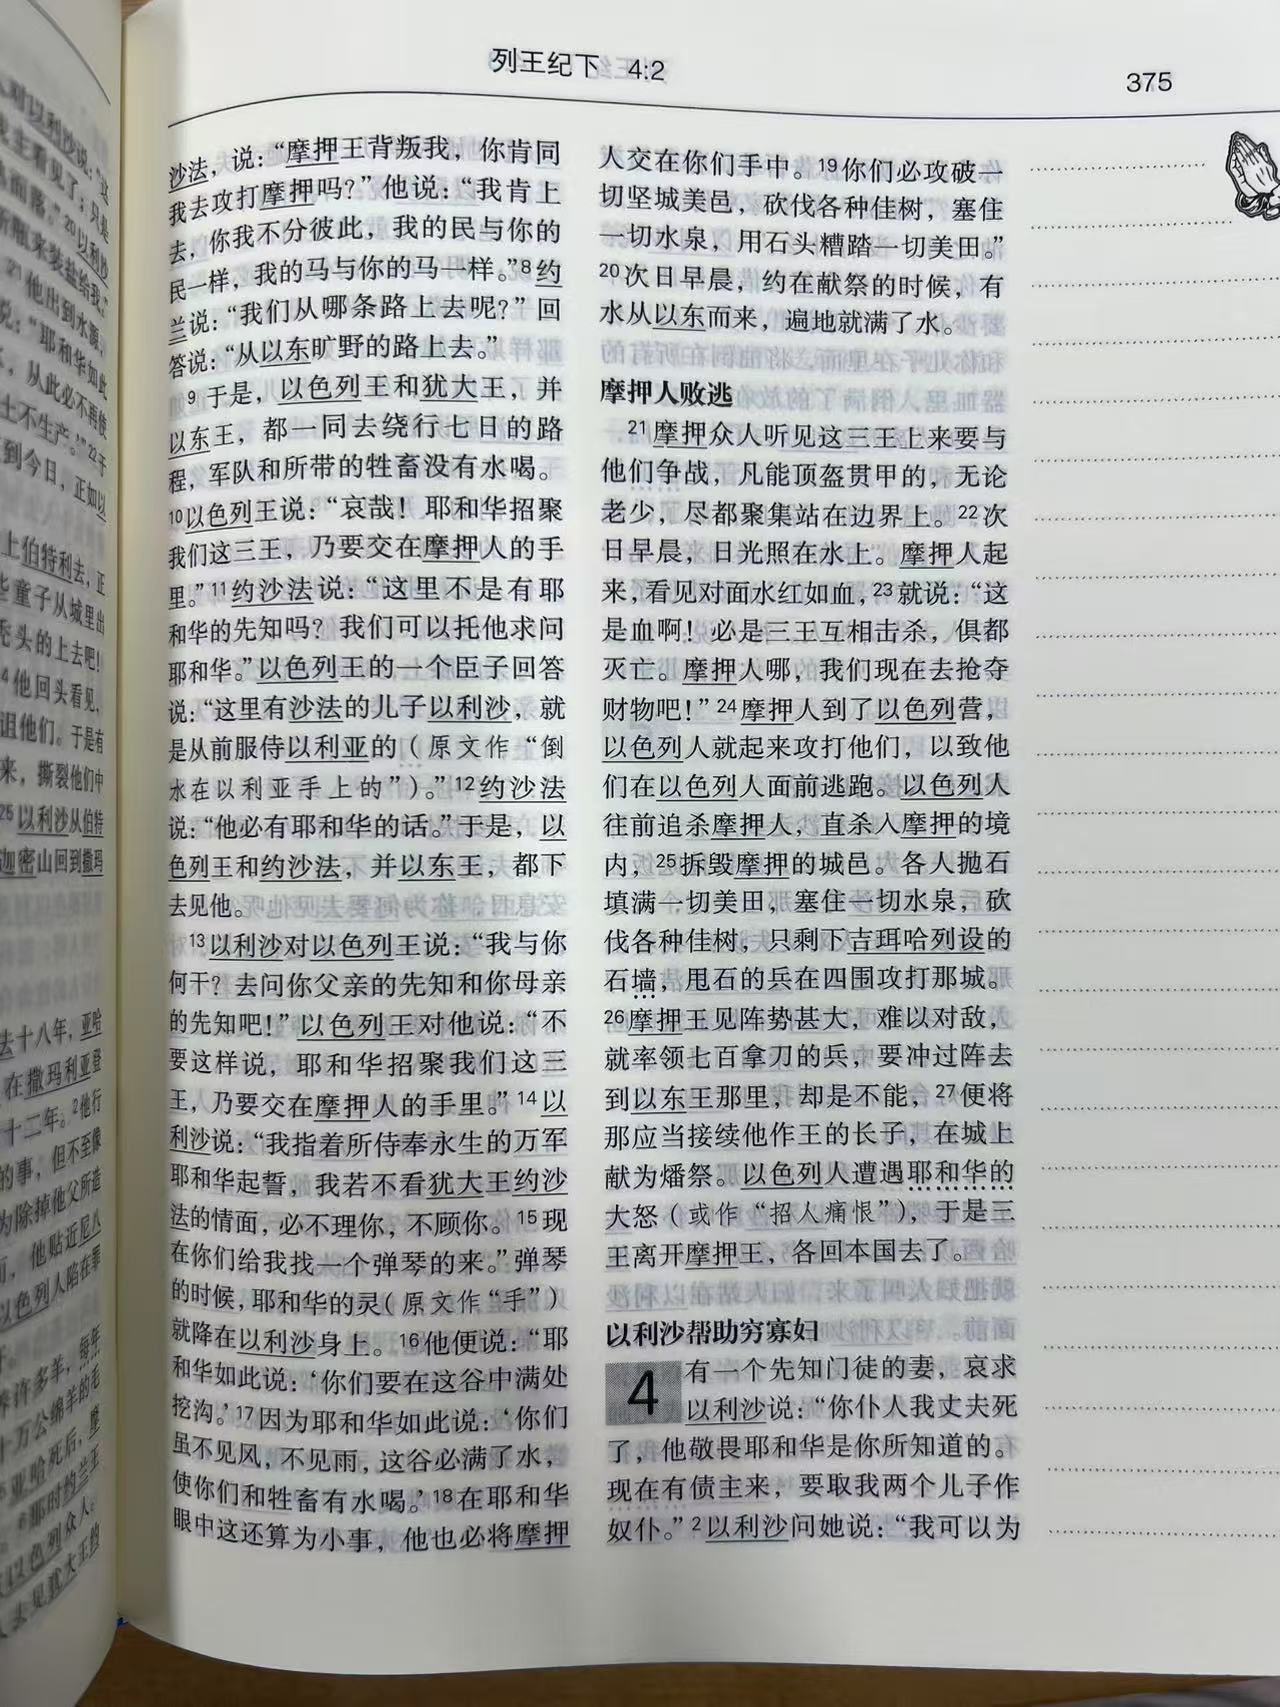 列王纪下 4:2
375
沙法，说：“摩押王背叛我，你肯同
我去攻打摩押吗？”他说：“我肯上
去，你我不分彼此，我的民与你的
民一样，我的马与你的马一样。”8约
兰说：“我们从哪条路上去呢？”回
答说：“从以东旷野的路上去。”
9 于是，以色列王和犹大王，并
以东王，都一同去绕行七日的路
程，军队和所带的牲畜没有水喝。
10以色列王说：“哀哉！耶和华招聚
我们这三王，乃要交在摩押人的手
里。”11约沙法说：“这里不是有耶
和华的先知吗？我们可以托他求问
耶和华。”以色列王的一个臣子回答
说：“这里有沙法的儿子以利沙，就
是从前服侍以利亚的（原文作“倒
水在以利亚手上的”）。”12约沙法
说：“他必有耶和华的话。”于是，以
色列王和约沙法，并以东王，都下
去见他。
13以利沙对以色列王说：“我与你
何干？去问你父亲的先知和你母亲
的先知吧！”以色列王对他说：“不
要这样说，耶和华招聚我们这三
王，乃要交在摩押人的手里。”14以
利沙说：“我指着所侍奉永生的万军
耶和华起誓，我若不看犹大王约沙
法的情面，必不理你，不顾你。15现
在你们给我找一个弹琴的来。”弹琴
的时候，耶和华的灵（原文作“手”）
就降在以利沙身上。16他便说：“耶
和华如此说：‘你们要在这谷中满处
挖沟。’17因为耶和华如此说：‘你们
虽不见风，不见雨，这谷必满了水，
使你们和牲畜有水喝。’18在耶和华
眼中这还算为小事，他也必将摩押
人交在你们手中。19你们必攻破一
切坚城美邑，砍伐各种佳树，塞住
一切水泉，用石头糟踏一切美田。”
20次日早晨，约在献祭的时候，有
水从以东而来，遍地就满了水。
摩押人败逃
21摩押众人听见这三王上来要与
他们争战，凡能顶盔贯甲的，无论
老少，尽都聚集站在边界上。22次
日早晨，日光照在水上。摩押人起
来，看见对面水红如血，23就说：“这
是血啊！必是三王互相击杀，俱都
灭亡。摩押人哪，我们现在去抢夺
财物吧！”24摩押人到了以色列营，
以色列人就起来攻打他们，以致他
们在以色列人面前逃跑。以色列人
往前追杀摩押人，直杀入摩押的境
内，25拆毁摩押的城邑。各人抛石
填满一切美田，塞住一切水泉，砍
伐各种佳树，只剩下吉珥哈列设的
石墙，甩石的兵在四围攻打那城。
26摩押王见阵势甚大，难以对敌，
就率领七百拿刀的兵，要冲过阵去
到以东王那里，却是不能，27便将
那应当接续他作王的长子，在城上
献为燔祭。以色列人遭遇耶和华的
大怒（或作“招人痛恨”），于是三
王离开摩押王，各回本国去了。
以利沙帮助穷寡妇
4 有一个先知门徒的妻，哀求
以利沙说：“你仆人我丈夫死
了，他敬畏耶和华是你所知道的。
现在有债主来，要取我两个儿子作
奴仆。”2以利沙问她说：“我可以为